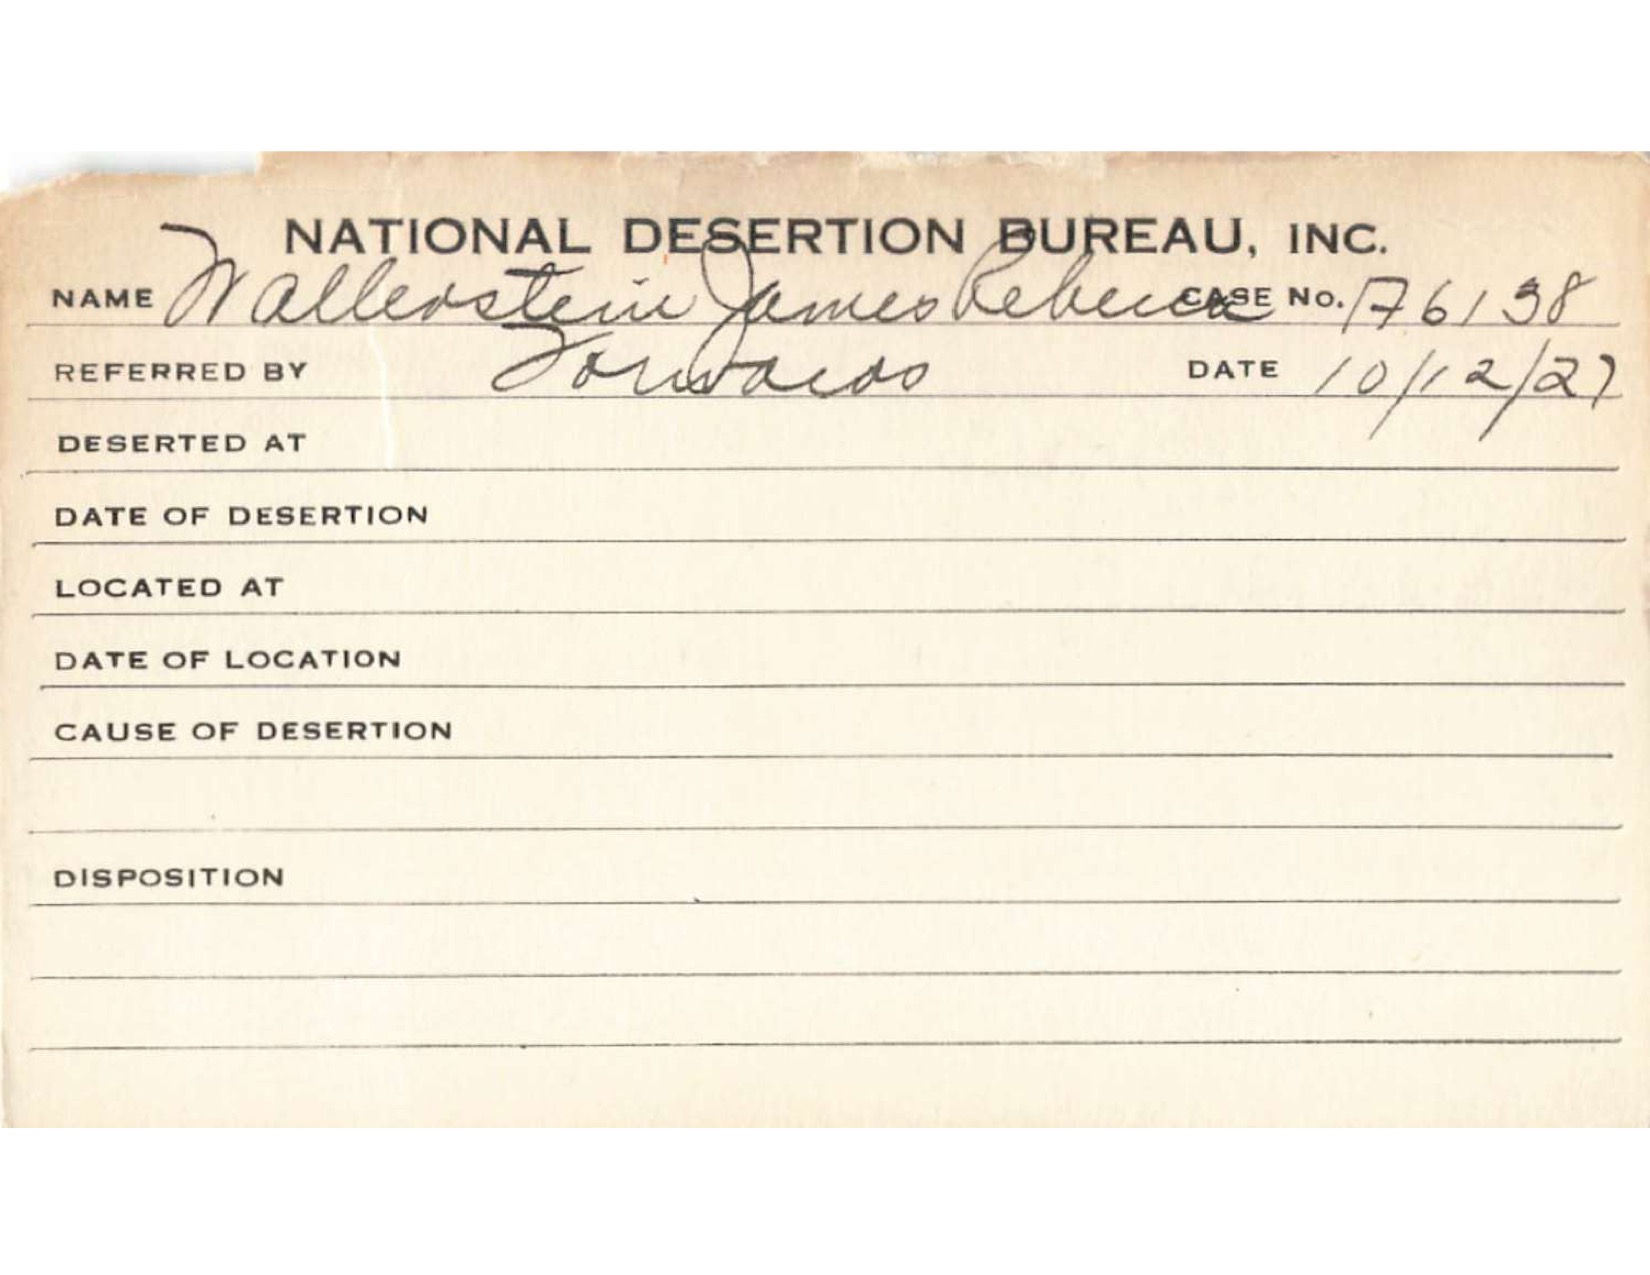 NATIONAL DESERTION BUREAU, INC.
NAME Wallerstein James Rebecca CASE No. 176138
REFERRED BY Forwards DATE 10/12/27
DESERTED AT
DATE OF DESERTION
LOCATED AT
DATE OF LOCATION
CAUSE OF DESERTION
DISPOSITION